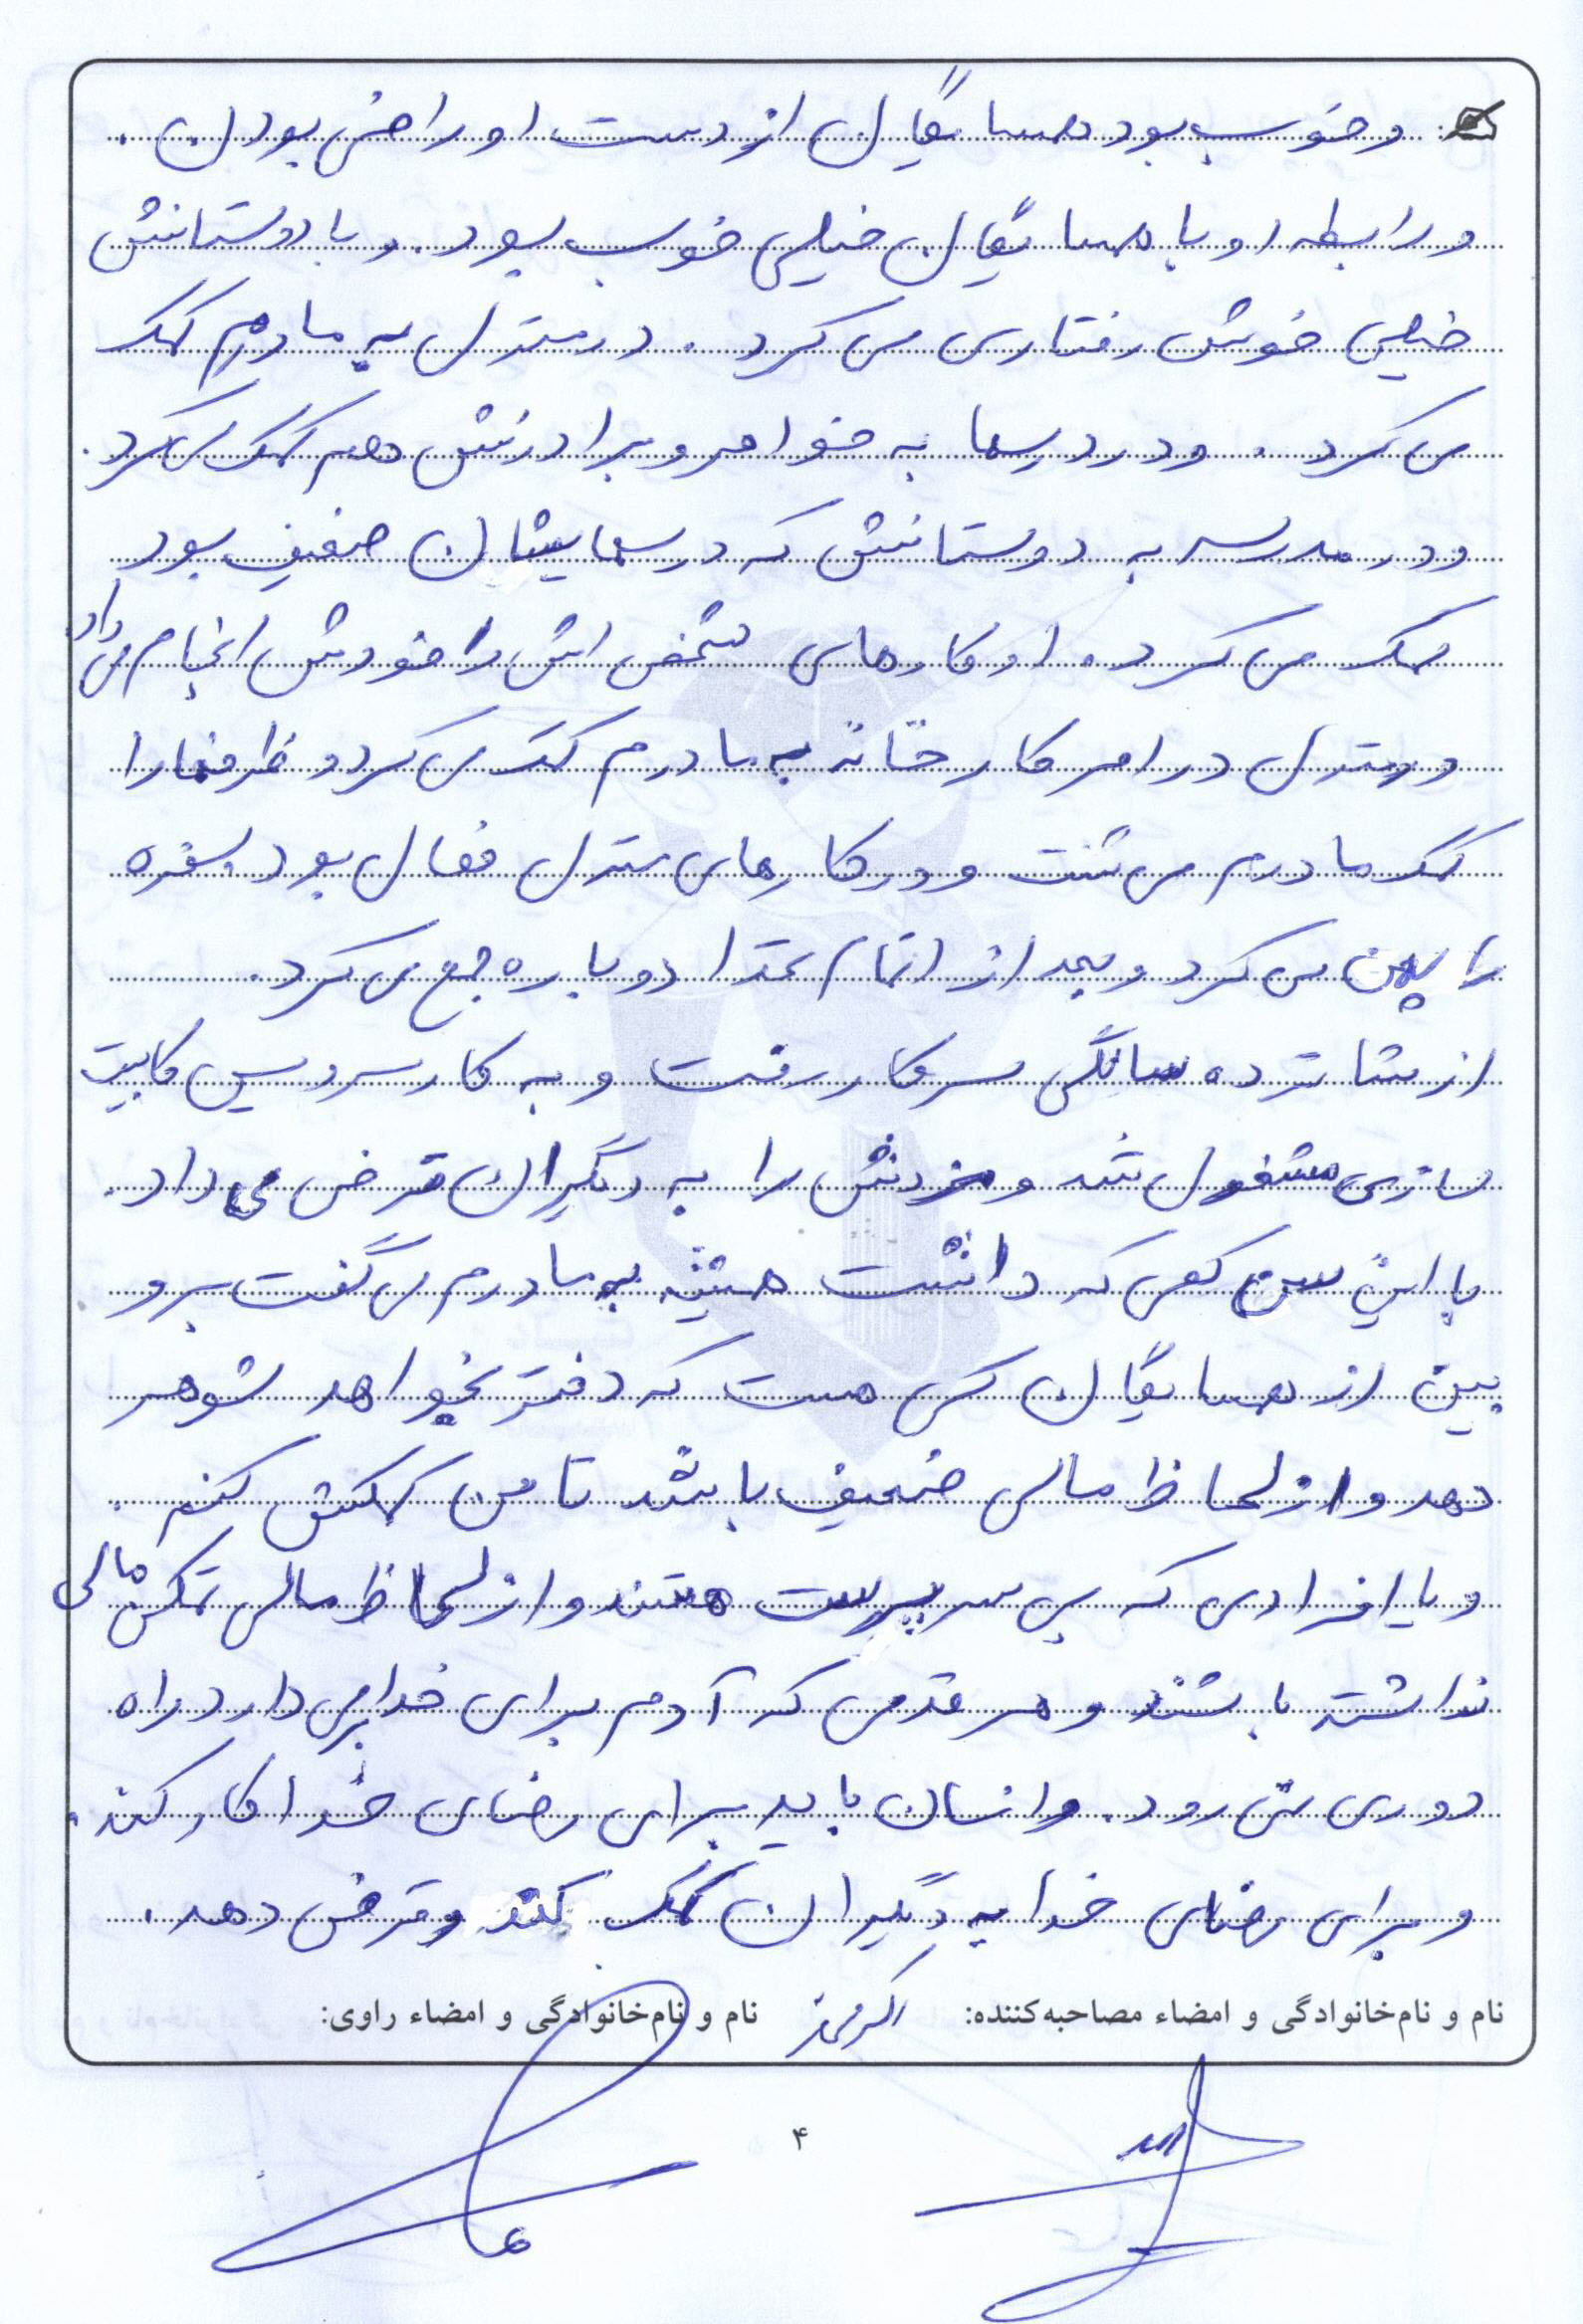 و خوب بود همسایگان از دست او راضی بودن.
و رابطه او با همسایگان خیلی خوب بود. و با دوستانش
خیلی خوش رفتاری می کرد. در منزل به مادرم کمک
می کرد. و در درسها به خواهر و برادرش هم کمک می کرد.
و در مدرسه به دوستانش که درسهایشان ضعیف بود
کمک می کرد. او کارهای شخصی اش را خودش انجام می داد
در منزل در امر کار خانه به مادرم کمک می کرد و ظرفها را
کمک مادرم می شست و در کارهای منزل فعال بود. سفره
را پهن می کرد و بعد از اتمام غذا دوباره جمع می کرد.
از شانزده سالگی سر کار رفت و به کار سرویس کابینت
سازی مشغول شد و مزدش را به دیگران قرض می داد.
با این سن کمی که داشت همیشه به مادرم می گفت برو
ببین از همسایگان کسی هست که دختر بخواهد شوهر
دهد و از لحاظ مالی ضعیف باشد تا من کمکش کنم.
و یا افرادی که بی سرپرست هستند و از لحاظ مالی تمکن مالی
نداشته باشند و هر قدمی که آدم برای خدا برمی دارد راه
دوری نمی رود. و انسان باید برای رضای خدا کار کند.
و برای رضای خدا به دیگران کمک کند و قرض دهد.
نام و نام‌خانوادگی و امضاء مصاحبه‌کننده: نام و نام‌خانوادگی و امضاء راوی:
۴